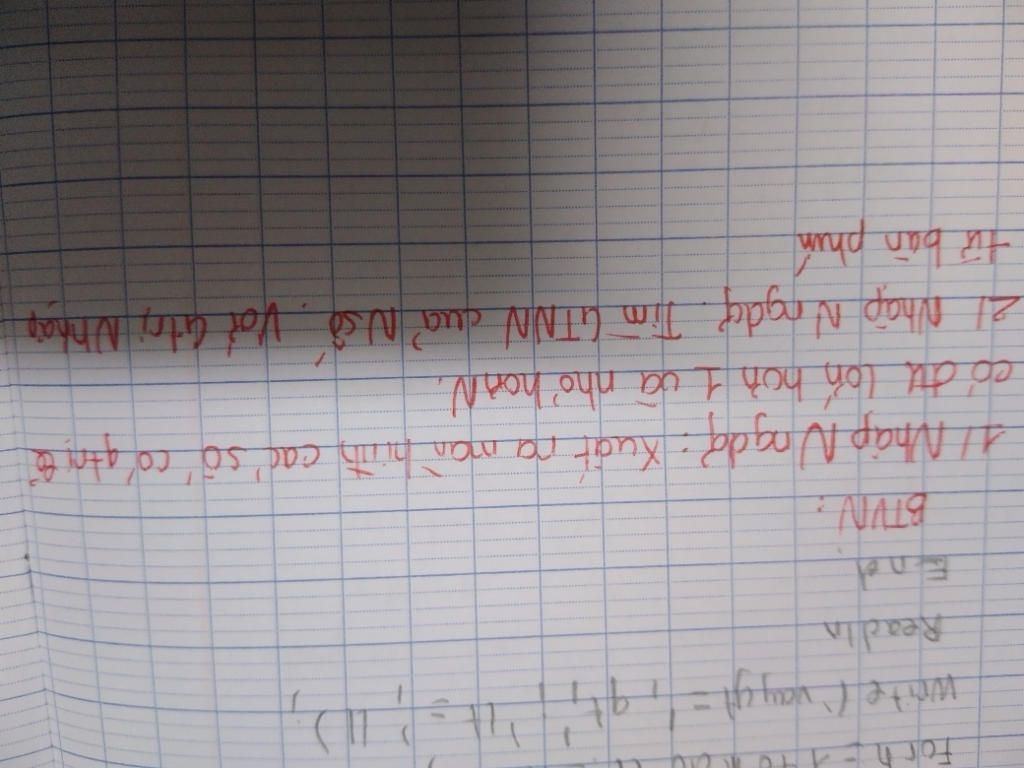 For n = 1 to n do
Write ('vaygt=', gt, ', lt = ', lt);
Readln
End
BTVN:
1) Nhập N ngdg: Xuất ra màn hình các số có gtrị
có đk lớn hơn 1 và nhỏ hơn N.
2) Nhập N ngdg. Tìm GTNN của N số. Với gtrị N nhập
từ bàn phím